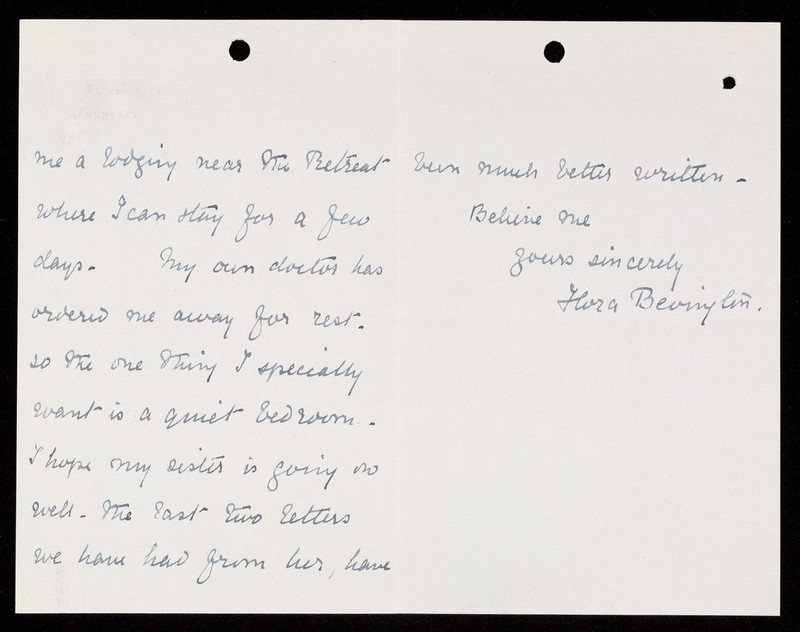 me a lodging near the Retreat
where I can stay for a few
days. My own doctor has
ordered me away for rest.
so the one thing I specially
want is a quiet bedroom.
I hope my sister is going on
well - The last two letters
we have had from her, have
been much better written -
Believe me
yours sincerely
Flora Bevington.